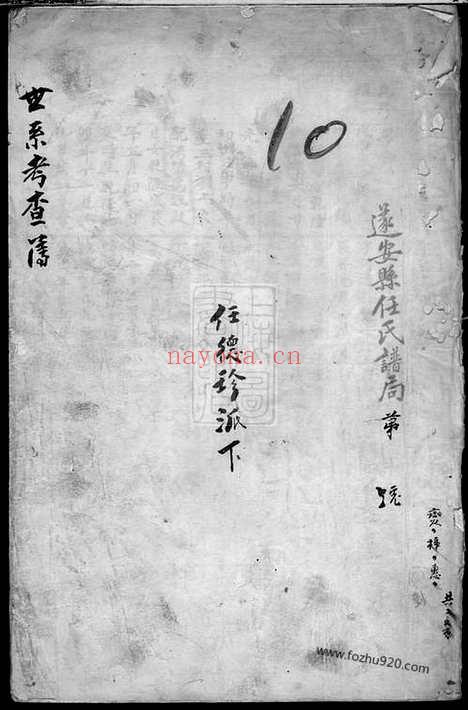 10
遂安縣任氏譜局
第 號
任德珍派下
世系考查簿
nayona.cn
www.fozhu920.com